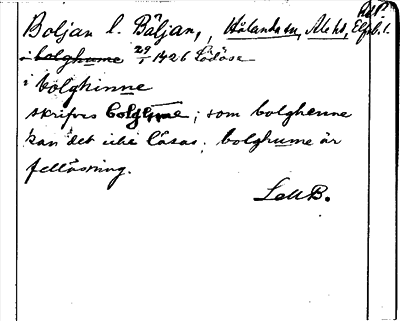 Boljan l. Bäljan, Hålanda sn, Ale hd, Elfsb. l.
i bolghume 29/1 1426 Lödöse
i bolghinne
skrifves bolghme; som bolghenne
kan det icke läsas; bolghume är
felläsning.